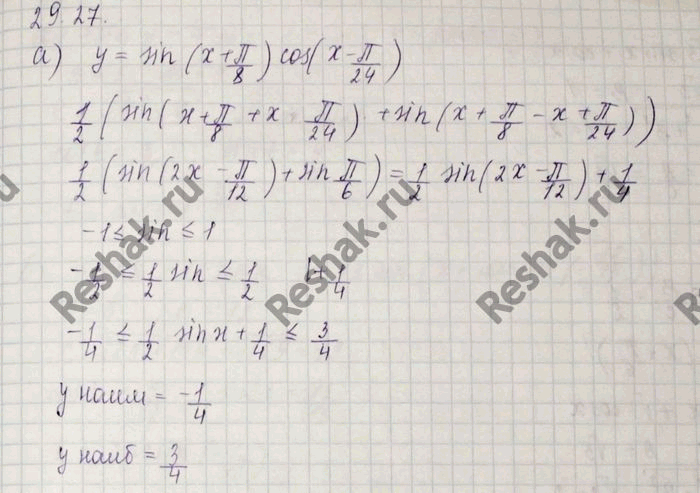 29.27.
а) y = sin(x+π/8) cos(x-π/24)
1/2 (sin(x+π/8 + x π/24) + sin(x + π/8 - x + π/24))
1/2 (sin(2x - π/12) + sin π/6) = 1/2 sin(2x - π/12) + 1/4
-1 ≤ sin ≤ 1
-1/2 ≤ 1/2 sin ≤ 1/2 |+1/4
-1/4 ≤ 1/2 sin x + 1/4 ≤ 3/4
y наим = -1/4
y наиб = 3/4
Reshak.ru
Reshak.ru
Reshak.ru